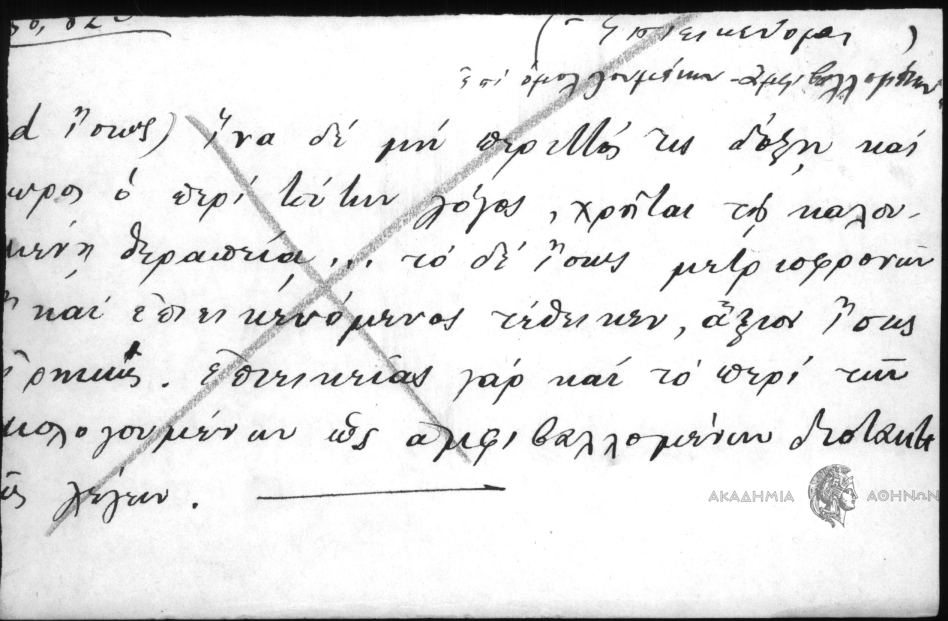 ( = Ἐπιεικεύομαι )
ἐπὶ ὁμολογουμένων - ἀμφιβαλλομένων
d ἴσως) ἵνα δέ μή περιττός τις δόξῃ καί
ὁ περί τούτων λόγος, χρῆται τῇ καλου-
μένῃ θεραπείᾳ ... τό δέ ἴσως μετριοφρονῶν
ἤ καί ἐπιεικευόμενος τέθεικεν, ἄξιον ἴσως
. ἐπιεικείας γάρ καί τό περί τῶν
μολογουμένων ὡς ἀμφιβαλλομένων διστακτι
ῶς λέγειν.
ΑΚΑΔΗΜΙΑ ΑΘΗΝΩΝ